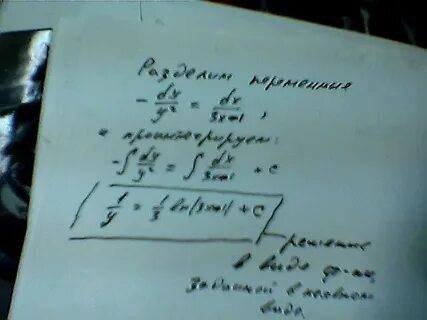 Разделим переменные
- dy/y² = dx/3x+1 ,
и проинтегрируем:
-∫ dy/y² = ∫ dx/3x+1 + C
1/y = 1/3 ln|3x+1| + C
решение
в виде ф-ции,
заданной в неявном
виде